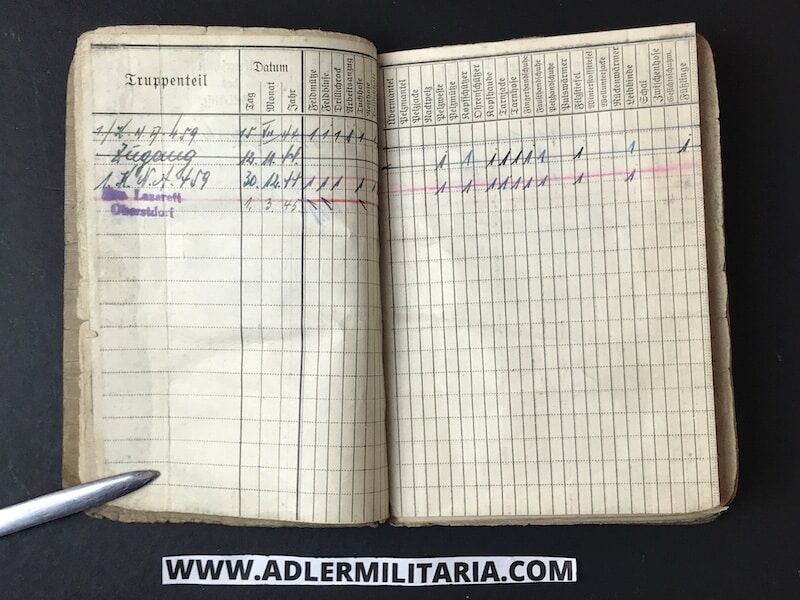 Truppenteil
Datum
Tag
Monat
Jahr
Feldmütze
Feldbluse
Drillichrock
Tuchhose
Übermantel
Pelzmantel
Pelzjacke
Pelzweste
Pelzmütze
Kopfschützer
Ohrenschützer
Kopfhaube
Tarnjacke
Tarnhose
Fingerhandschuhe
Fausthandschuhe
Pelzhandschuhe
Pulswärmer
Filzstiefel
Rückenwärmer
Leibbinde
Schal
Zwischenhose
Füßlinge
459 15. VII 44 1 1 1 1 1
Zugang 12. 11. 44. 1 1 1 1 1 1 1 1 1 1
459 30. 12. 44 1 1 1 1 1 1 1 1 1 1 1 1 1 1
Lazarett
Oberstdorf
1. 3. 45
WWW.ADLERMILITARIA.COM